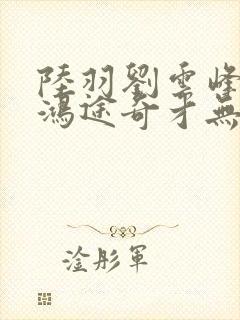 陸羽劉雲峰
鴻途奇才無
淦彤軍